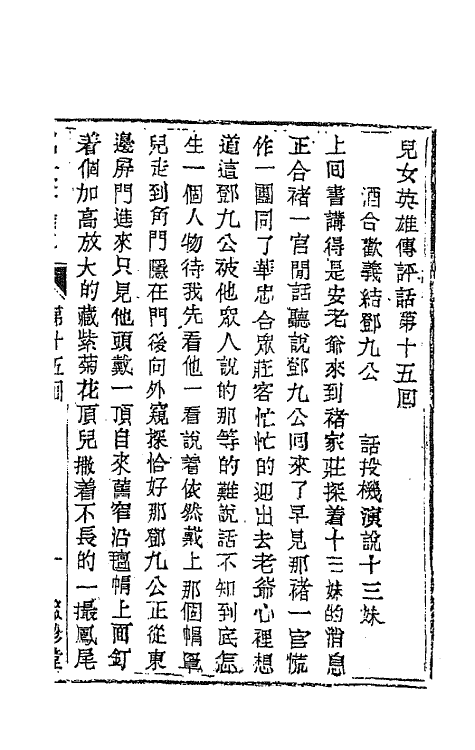 兒女英雄傳評話第十五回
酒合歡義結鄧九公　話投機演說十三妹
上回書講得是安老爺來到褚家莊探着十三妹的消息
正合褚一官閒話聽說鄧九公回來了早見那褚一官慌
作一團同了華忠合眾莊客忙忙的迎出去老爺心裡想
道這鄧九公被他眾人說的那等的難說話不知到底怎
生一個人物待我先看他一看說着依然戴上那個帽罩
兒走到角門隱在門後向外窺探恰好那鄧九公正從東
邊屏門進來只見他頭戴一頂自來舊窄沿氊帽上面釘
着個加高放大的藏紫菊花頂兒撒着不長的一撮鳳尾
第十五回
一